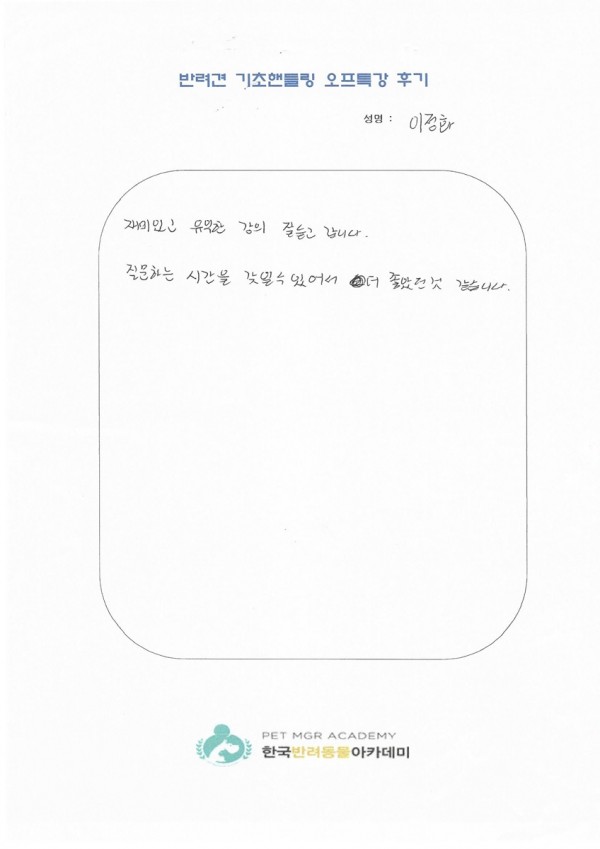 반려견 기초핸들링 오프특강 후기
성명 : 이정화
재미있고 유익한 강의 잘듣고 갑니다.
질문하는 시간을 갖일수있어서 더 좋았던것 같습니다.
PET MGR ACADEMY
한국반려동물아카데미